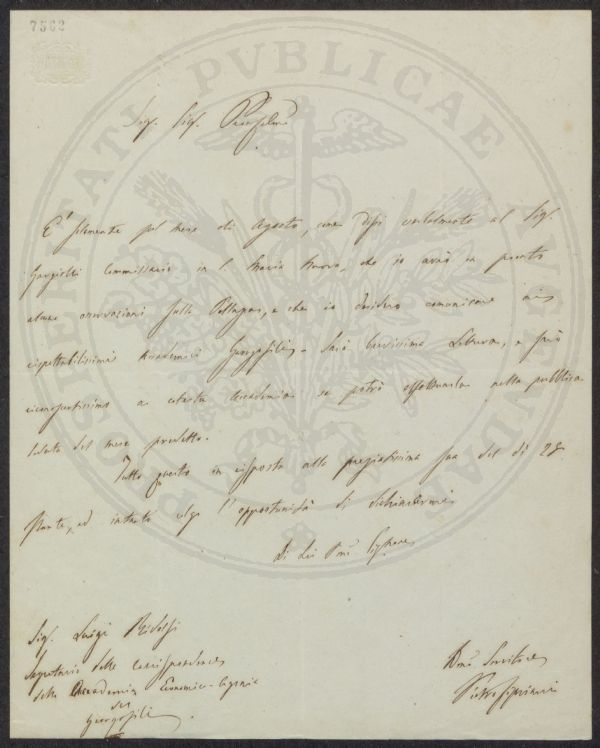 7562
PROSPERITATI PVBLICAE AVGENDAE
Sig. Sig.
È solamente pel mese di Agosto, come dissi verbalmente al Sig.
Commissario in S. Maria Nuova, che io avrò in pronto
alcune osservazioni sulla Pellagra, e che io desidero comunicare
rispettabilissimi Accademici Georgofili. Sarà brevissima Lettura, e sarò
riconoscentissimo a cotesta Accademia se potrò effettuarla nella pubblica
seduta del mese predetto.
Tutto questo in risposta alla pregiatissima sua del dì 28
stante, ed intanto colgo l'opportunità di dichiararmi
Di Lei Sig. Signore
Sig. Luigi Ridolfi
Segretario delle corrispondenze
della Accademia Economico-Agraria
dei
Georgofili
Servitore
Pietro Cipriani